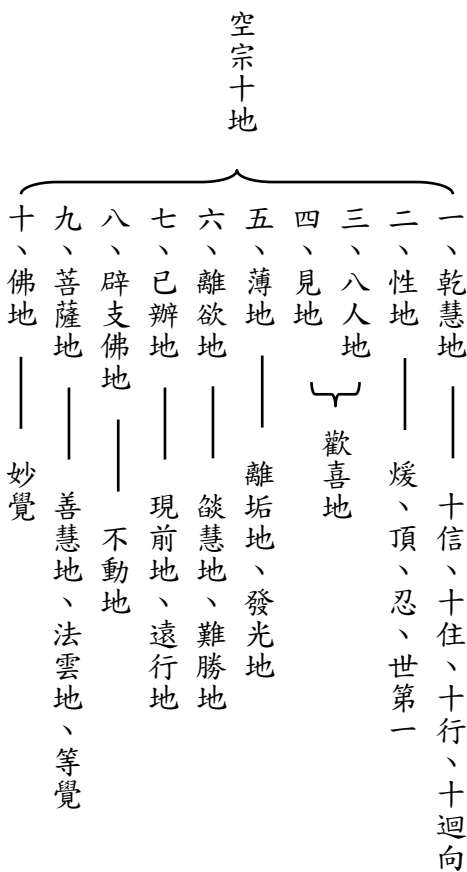 空宗十地
一、乾慧地 十信、十住、十行、十迴向
二、性地 煖、頂、忍、世第一
三、八人地
四、見地
歡喜地
五、薄地 離垢地、發光地
六、離欲地 燄慧地、難勝地
七、已辦地 現前地、遠行地
八、辟支佛地 不動地
九、菩薩地 善慧地、法雲地、等覺
十、佛地 妙覺